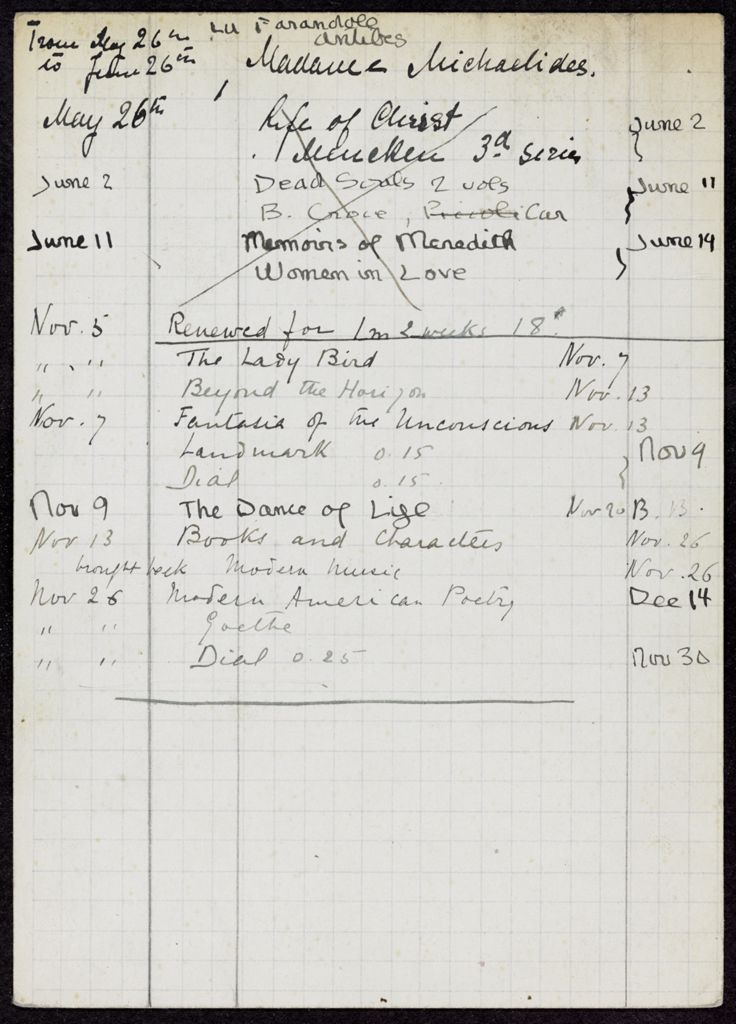 From May 26th La Farandole
Antibes
to June 26th Madame Michaelides.
May 26th Life of Christ June 2
Mencken 3d series
June 2 Dead Souls 2 vols June 11
B. Croce, Car
June 11 Memoirs of Meredith June 14
Women in Love
Nov. 5 Renewed for 1 m 2 weeks 18
" " The Lady Bird Nov. 7
" " Beyond the Horizon Nov. 13
Nov. 7 Fantasia of the Unconscious Nov. 13
Landmark 0.15 Nov 9
Dial 0.15
Nov 9 The Dance of Life Nov 20 B. 13.
Nov 13 Books and Characters Nov. 26
brought back Modern Music Nov. 26
Nov 26 Modern American Poetry Dec 14
" " Goethe
" " Dial 0.25 Nov 30